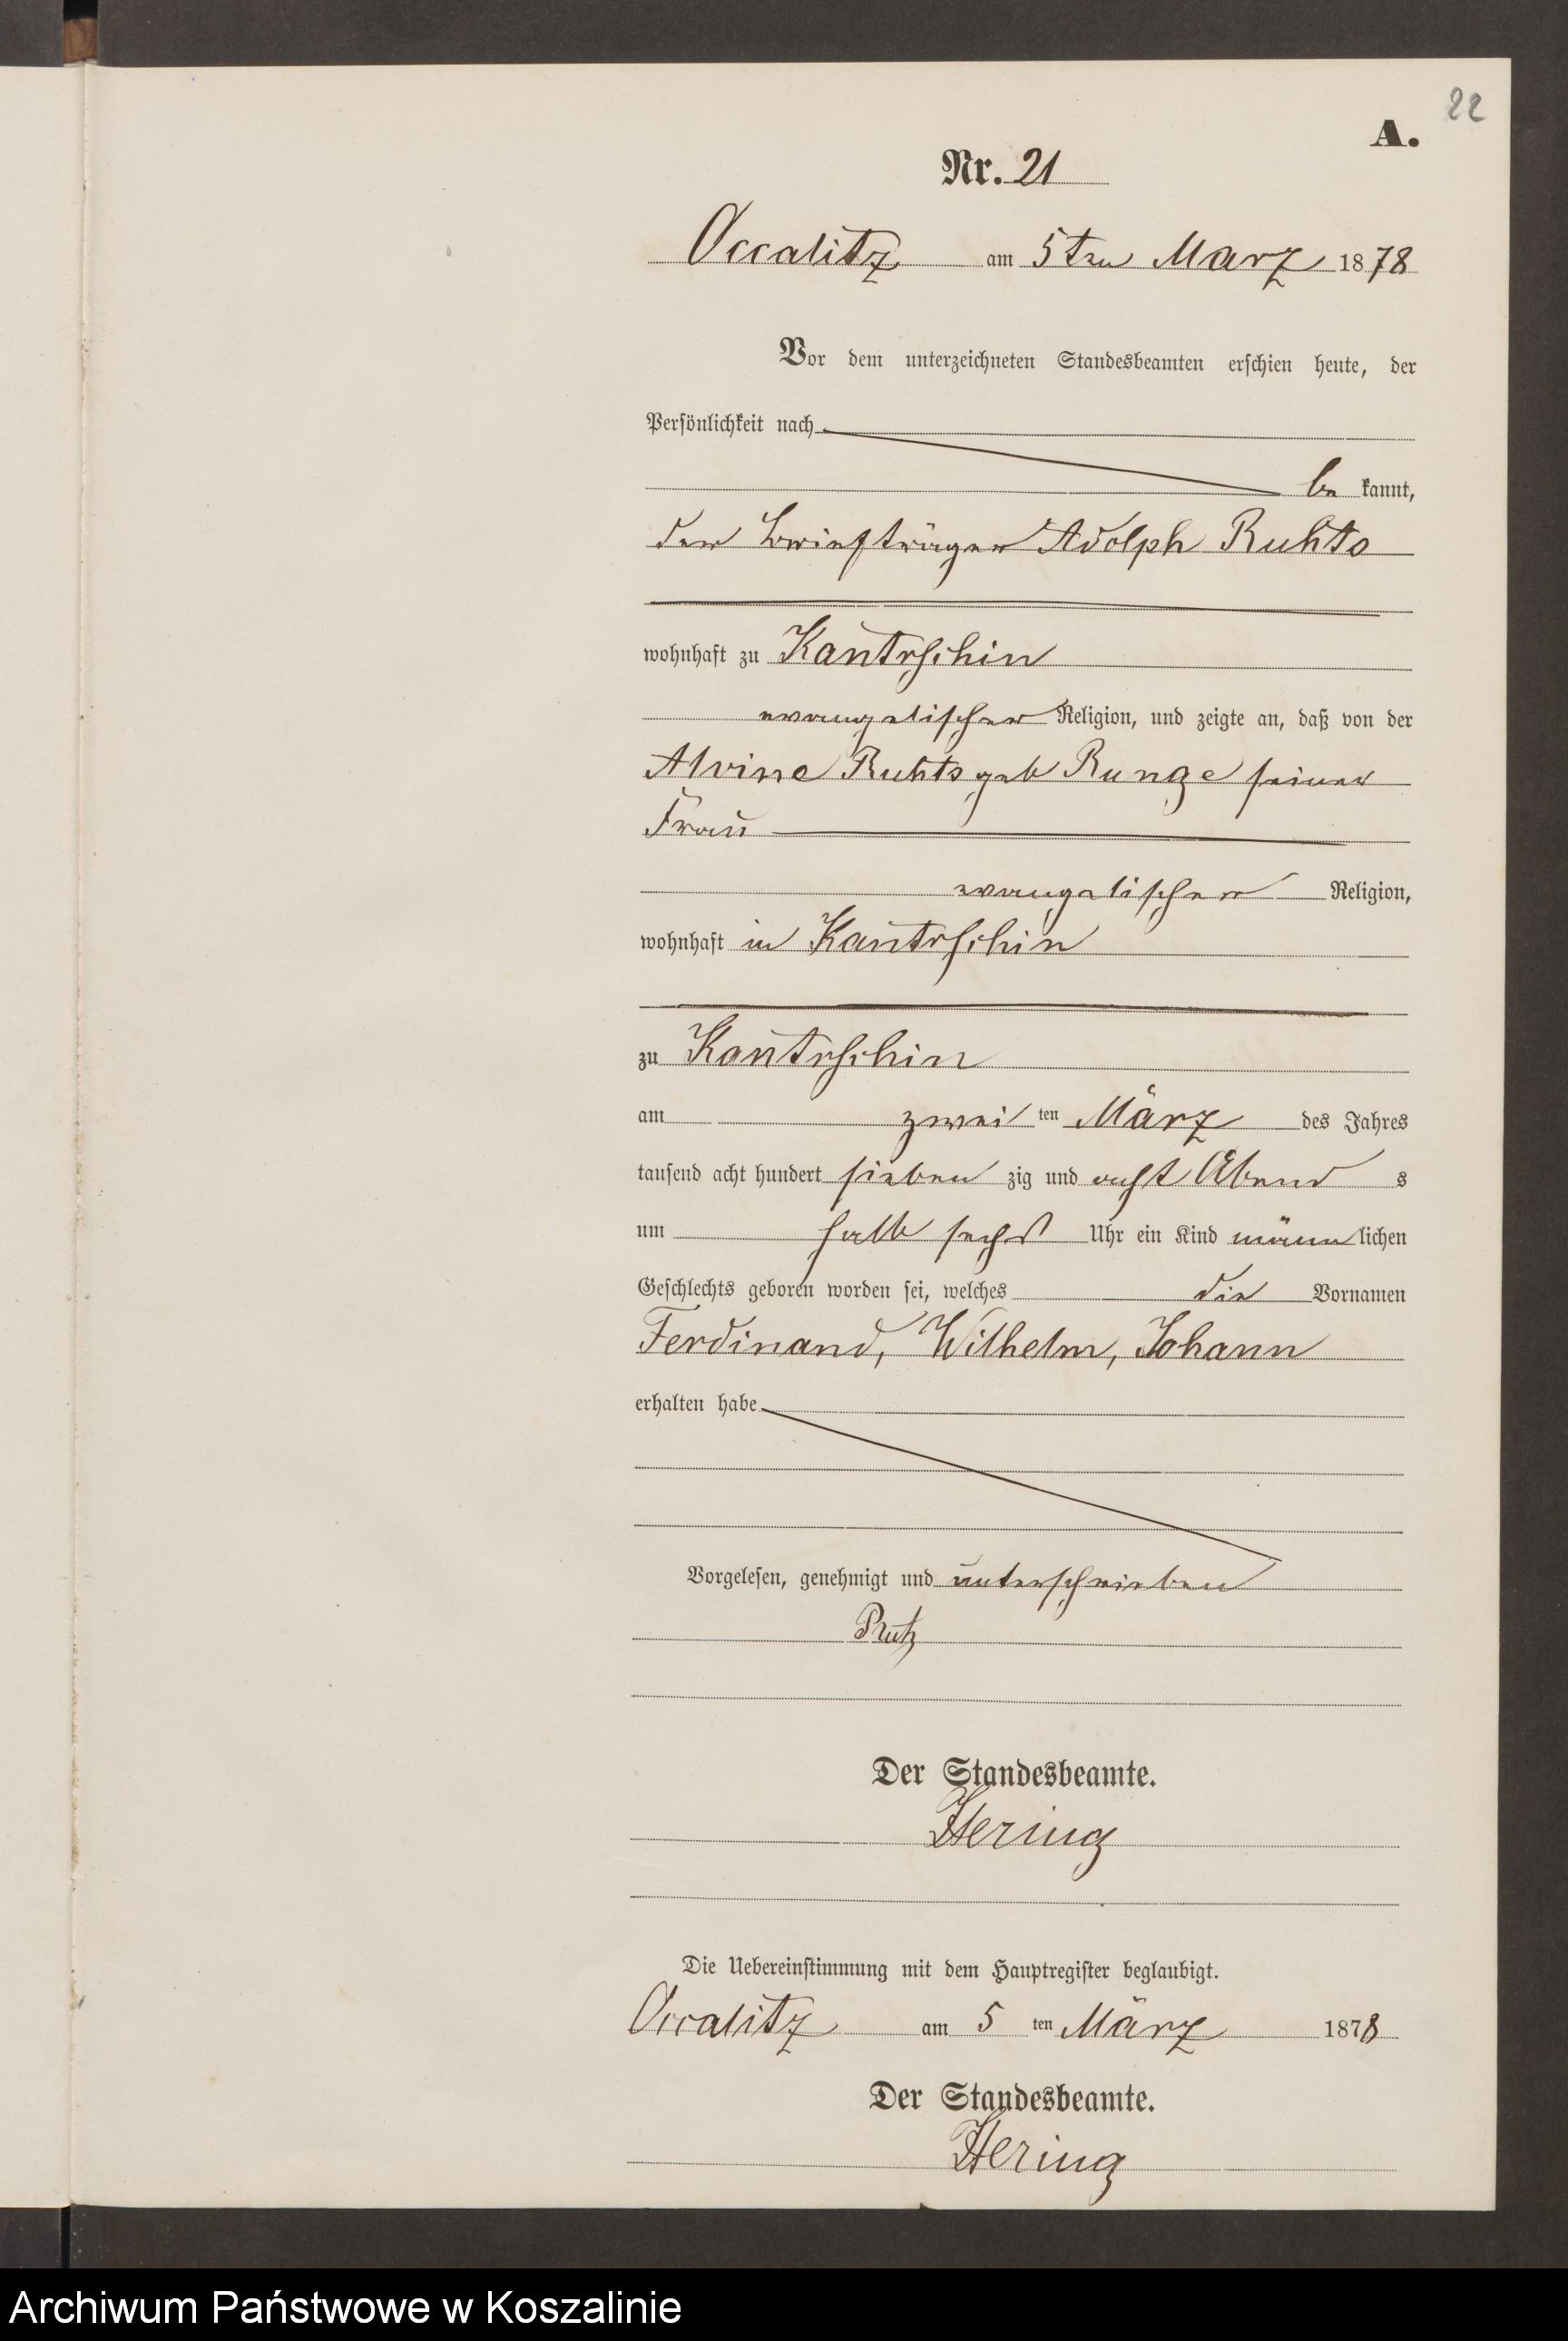 22
A.
Nr. 21
Occalitz am 5ten Marz 1878
Vor dem unterzeichneten Standesbeamten erschien heute, der
Persönlichkeit nach
be kannt,
der Briefträger Adolph Ruhts
wohnhaft zu Kantrschin
evangelischer Religion, und zeigte an, daß von der
Alvine Ruhts geb Runge seiner
Frau
evangelischer Religion,
wohnhaft in Kantrschin
zu Kantrschin
am zwei ten März des Jahres
tausend acht hundert sieben zig und acht Abend s
um halb sechs Uhr ein Kind männ lichen
Geschlechts geboren worden sei, welches die Vornamen
Ferdinand, Wilhelm, Johann
erhalten habe
Vorgelesen, genehmigt und unterschrieben
Der Standesbeamte.
Hering
Die Uebereinstimmung mit dem Hauptregister beglaubigt.
Occalitz am 5 ten März 1878
Der Standesbeamte.
Hering
Archiwum Państwowe w Koszalinie